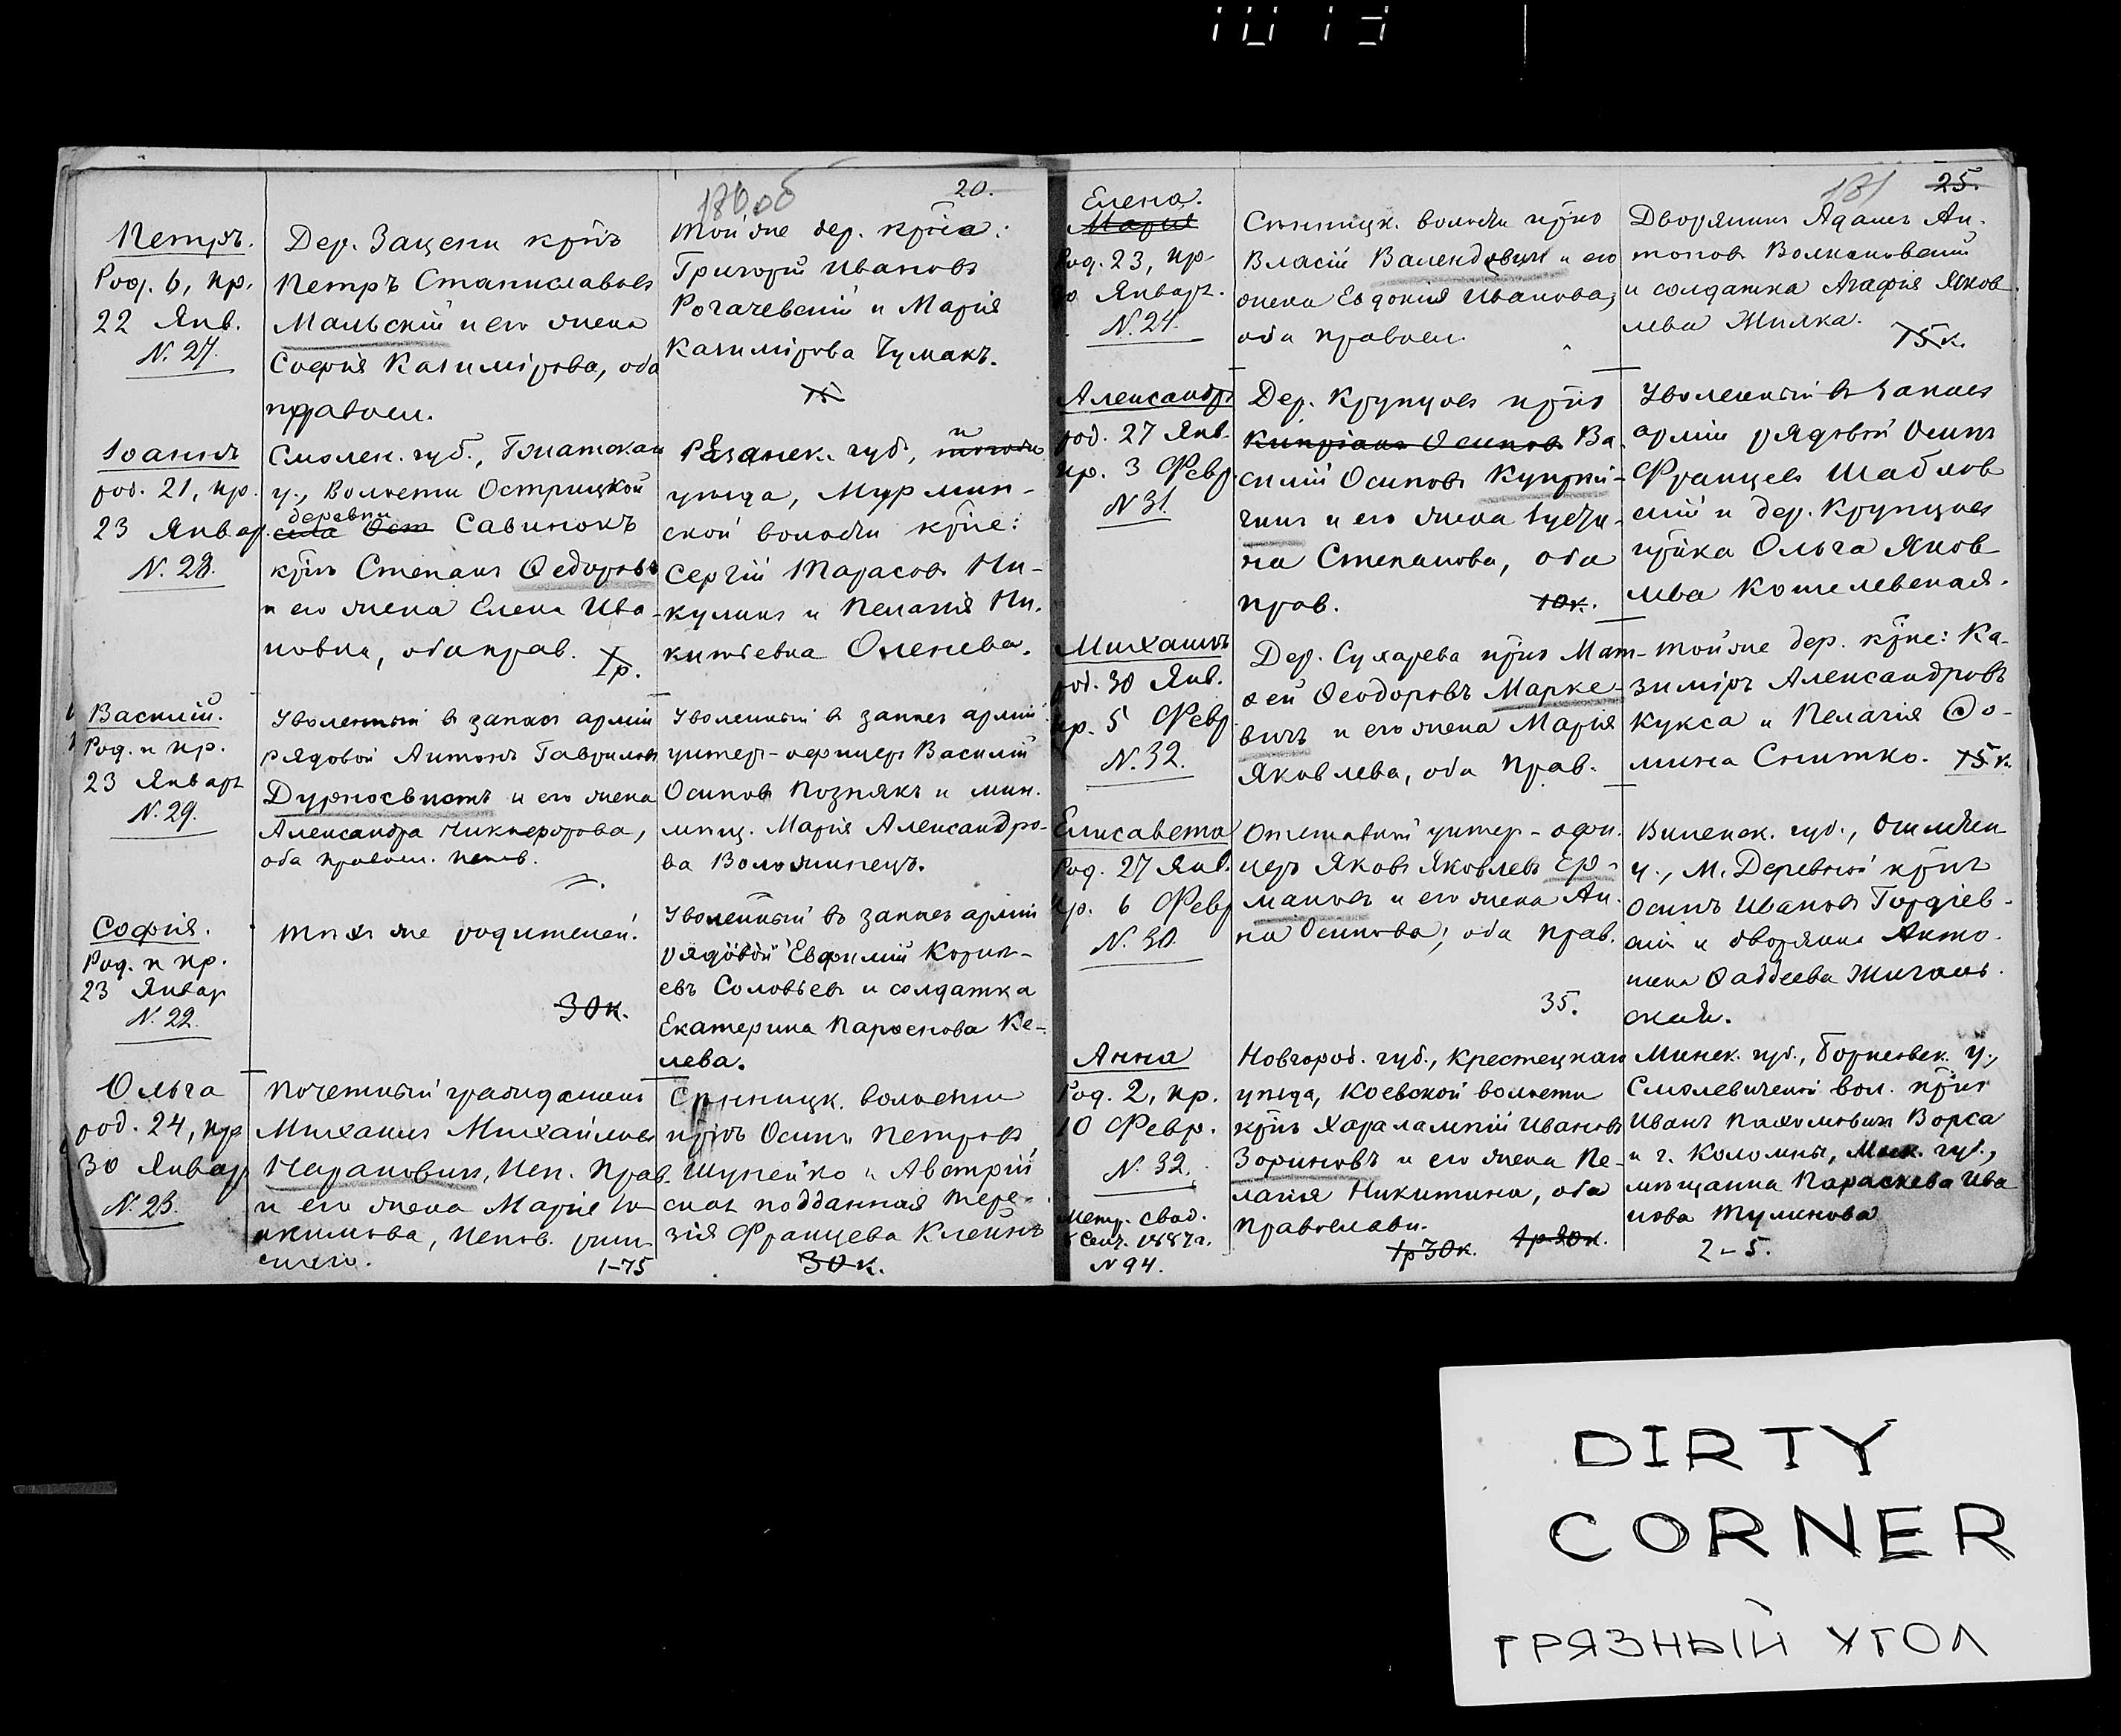 20.
Петръ.
Род. 6, кр.
22 Янв.
N. 27.
Дер. Зацени крнъ
Петръ Станиславовъ
Мальскій и его жена
Софія Казимірова, оба
правосл.
той же дер. кр̃не:
Григорій Ивановъ
Рогачевскій и Марія
Казимірова Чумакъ.
Іоаннъ
род. 21, кр.
23 Январ.
N. 28.
Смолен. губ., Гжатскаго
у., Волости Острицкой
деревни
села Ост Савинокъ
крнъ Степанъ Ѳедоровъ
и его жена Елена Ива-
новна, оба прав.
1р.
Рязанск. губ.,
уѣзда, Мурмин-
ской волости кр̃не:
Сергій Тарасовъ Ни-
кулинъ и Пелагія Ни-
китьевна Оленева.
Василій.
Род. и кр.
23 Январ
N. 29.
Уволенный в запасъ арміи
рядовой Антонъ Гавриловъ
Дурносвистъ и его жена
Александра Никифорова,
оба правосл.
Уволенный в запасъ арміи
унтер-офицеръ Василій
Осиповъ Познякъ и мин.
мѣщ. Марія Александро-
ва Воложинецъ.
Софія.
Род. и кр.
23 Январ
N. 22.
тѣхъ же родителей.
30к.
Уволенный въ запасъ арміи
рядовой Евфимій
евъ Соловьевъ и солдатка
Екатерина Парфенова Ке-
лева.
Ольга
род. 24, кр
30 Январ
N. 23.
Почетный гражданинъ
Михаилъ Михайловъ
Наранович, исп. прав.
и его жена Марія Іо-
акимова, испов. рим-
скаго.
1-75
Сѣнницк. волости
кр̃нъ Осипъ Петровъ
Шупейко и Австрій
ская подданная Тере-
зія Францева Клейнъ
30 к.
181 25.
Елена.
Марія
Род. 23, кр.
30 Январ.
N. 24.
Сѣнницк. волости кр̃нъ
Власій Валендовичъ и его
жена Евдокія Иванова,
оба правосл.
Дворянинъ Адамъ Ан-
тоновъ Волкановскій
и солдатка Агафія Яков
лева Жилка.
15к.
Александръ
род. 27 Янв.
кр. 3 Февр.
N 31.
Дер. Крупцовъ кр̃нъ
Кипріанъ Осиповъ Ва-
силій Осиповъ Купрій-
чикъ и его жена Іусти-
на Степанова, оба
прав.
10к.
Уволенный въ запасъ
арміи рядовой Осипъ
Францевъ Шаблов
скій и дер. Крупцовъ
кр̃нка Ольга Яков
лева Кошелевская.
Михаилъ
род. 30 Янв.
кр. 5 Февр.
N. 32.
Дер. Сухарева кр̃нъ Мат-
ѳей Ѳеодоровъ Марке-
вичъ и его жена Марія
Яковлева, оба прав.
той же дер. кр̃не: Ка-
зиміръ Александровъ
Кукса и Пелагія Ѳо-
мина Снитко.
15 к.
Елисавета
Род. 27 Янв.
кр. 6 Февр
N. 30.
Отставной унтер-офи-
церъ Яковъ Яковлевъ Ер-
маковъ и его жена Ан-
на Осипова; оба прав.
35.
Виленск. губ., Ошмянск
у., М. Деревной кр̃нъ
Осипъ Ивановъ Гордіев-
скій и дворянка Анто-
нина Ѳаддеева
ская.
Анна
Род. 2, кр.
10 Февр.
N. 32.
Метр. свид.
Сент. 1887г.
N 94.
Новгород. губ., Крестецкаго
уѣзда, Коевской волости
крнъ Харалампій Ивановъ
Зориновъ и его жена Пе-
лагія Никитина, оба
православн.
1р 30к.
Минск. губ., Борисовск. у.,
Смолевичской вол. кр̃нъ
Иванъ Пахомовичъ Ворса
и г. Коломны, Моск. губ.,
мѣщанка Параскева Ива
нова Тулинова
2-5.
DIRTY
CORNER
ГРЯЗНЫЙ УГОЛ